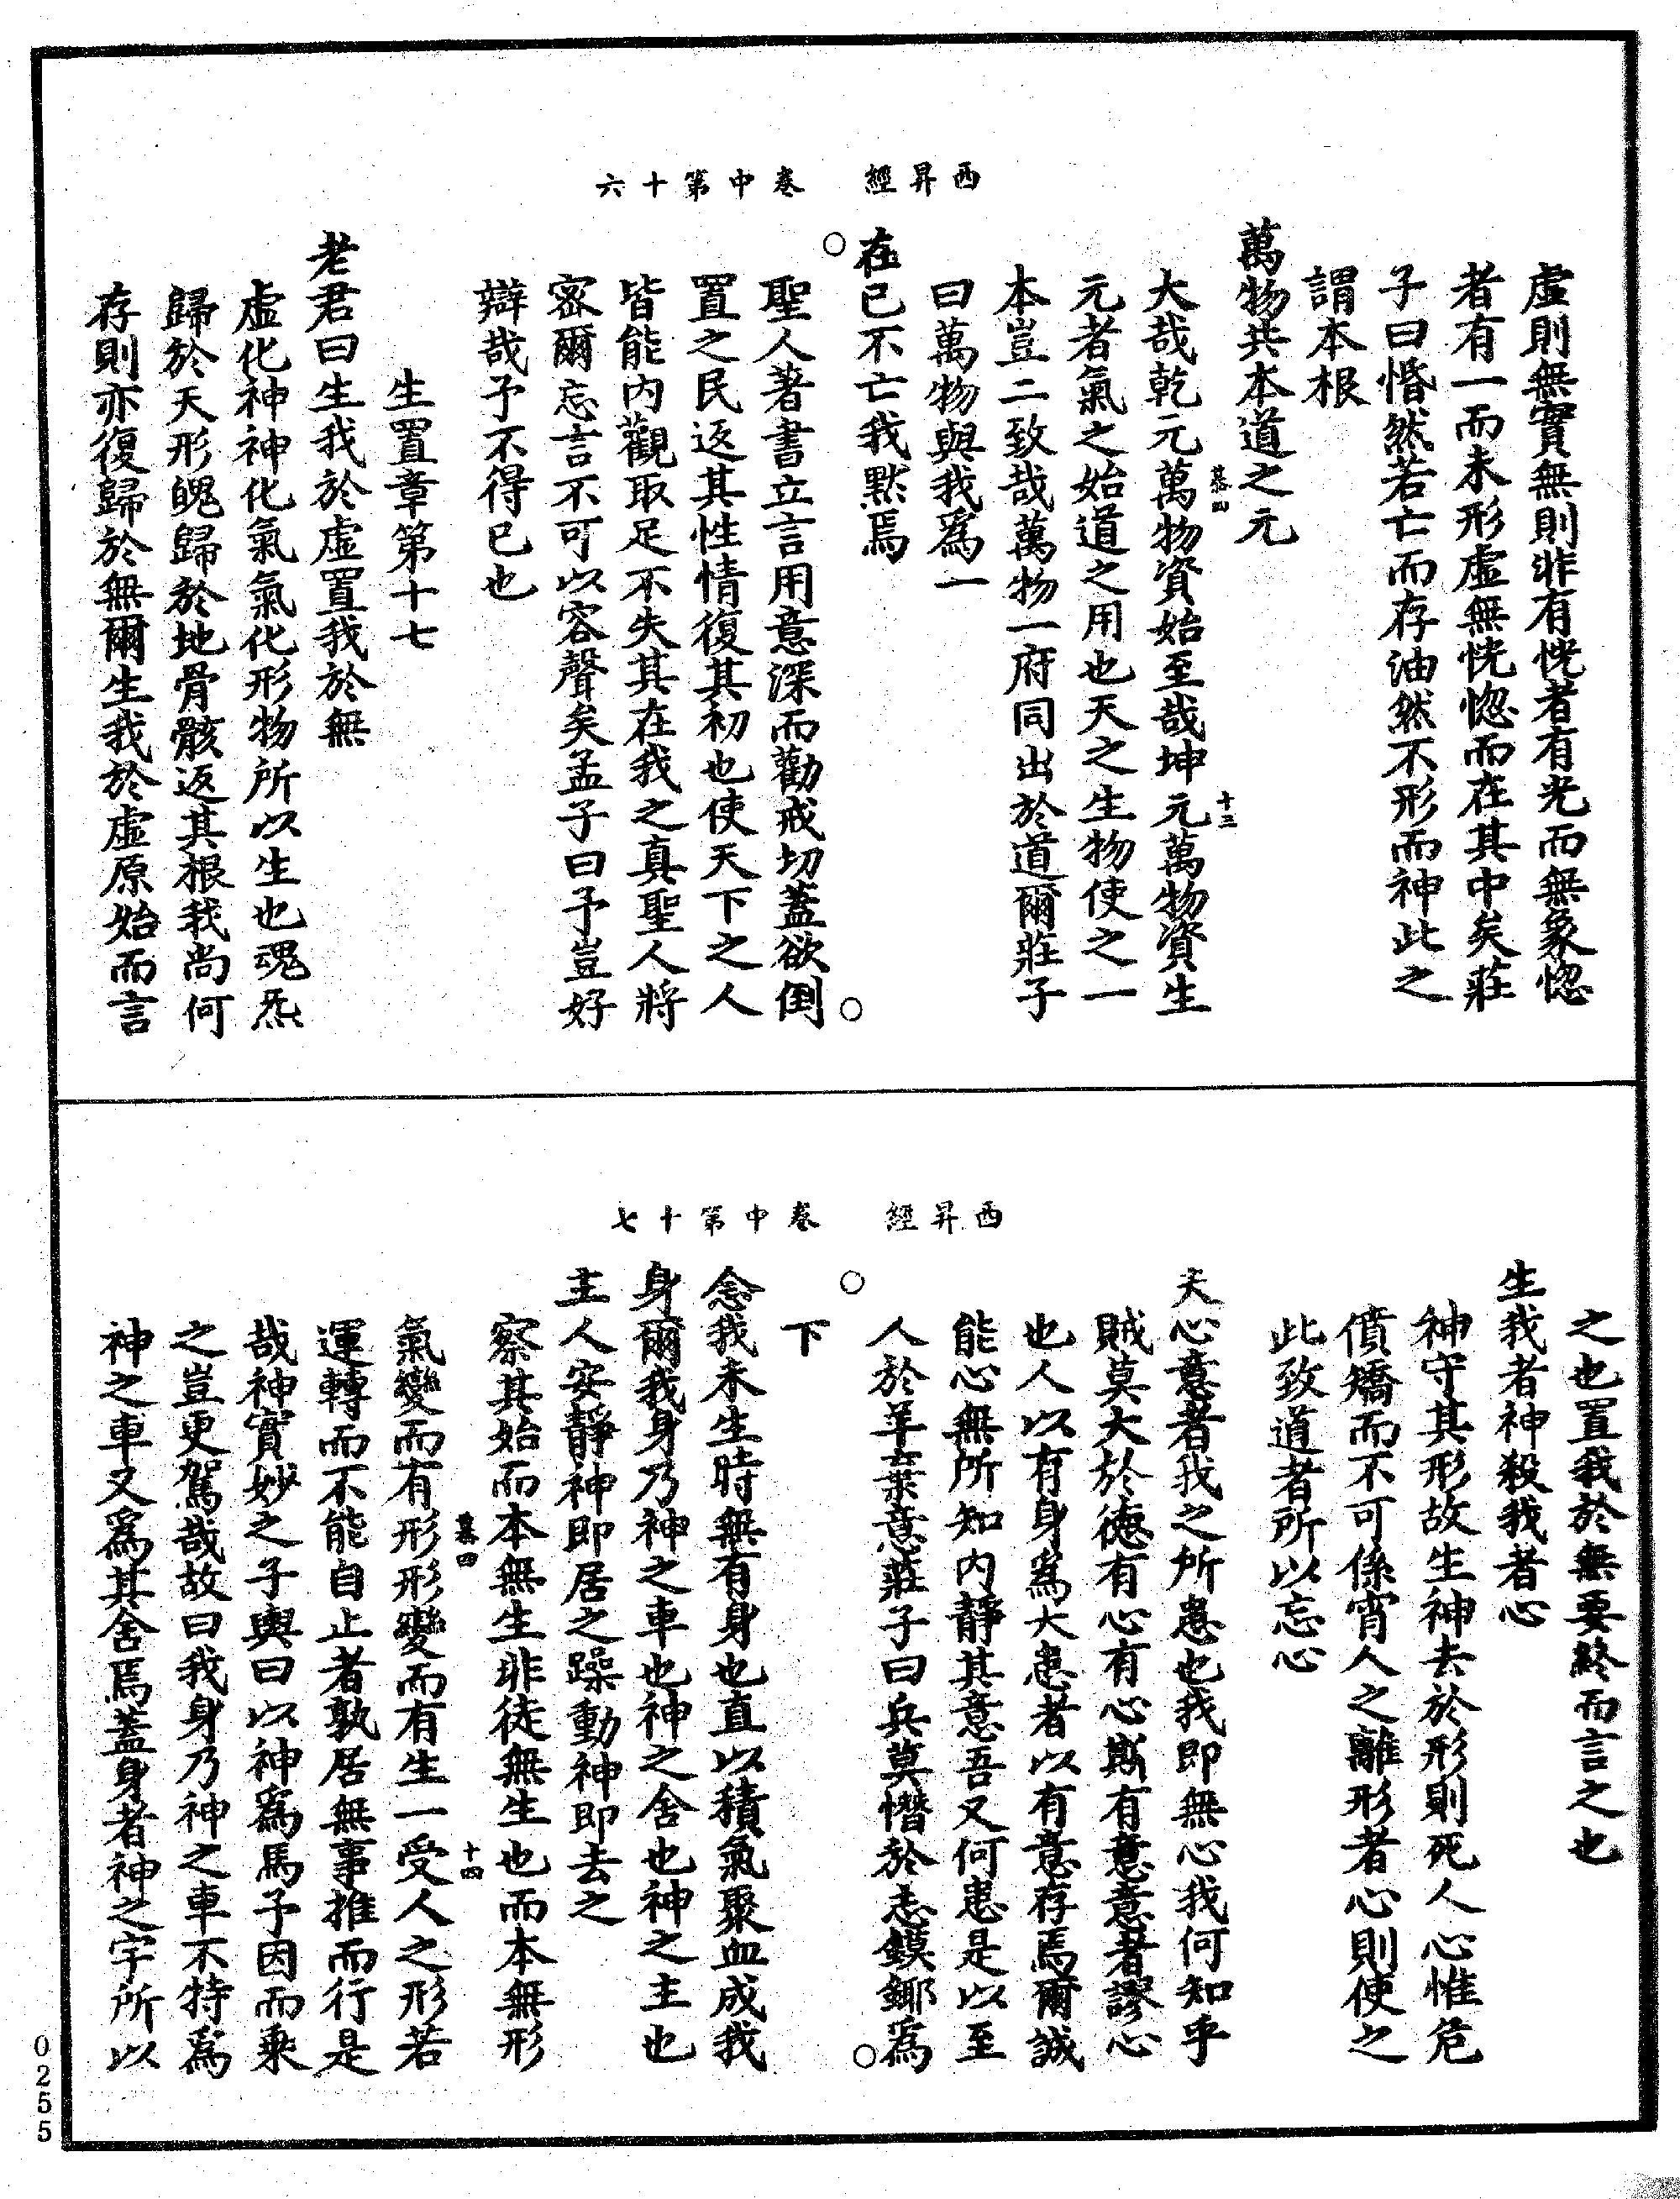 西昇經　卷中第十六
虛則無實無則非有恍者有光而無象惚
者有一而未形虛無恍惚而在其中矣莊
子曰惛然若亡而存油然不形而神此之
謂本根
萬物共本道之元
慕四　十三
大哉乾元萬物資始至哉坤元萬物資生
元者氣之始道之用也天之生物使之一
本豈二致哉萬物一府同出於道爾莊子
曰萬物與我爲一
在已不亡我默焉
聖人著書立言用意深而勸戒切蓋欲倒
置之民返其性情復其初也使天下之人
皆能內觀取足不失其在我之真聖人將
密爾忘言不可以容聲矣孟子曰予豈好
辯哉予不得已也
生置章第十七
老君曰生我於虛置我於無
虛化神神化氣氣化形物所以生也魂炁
歸於天形魄歸於地骨骸返其根我尚何
存則亦復歸於無爾生我於虛原始而言
西昇經　卷中第十七
之也置我於無要終而言之也
生我者神殺我者心
神守其形故生神去於形則死人心惟危
僨矯而不可係宵人之離形者心則使之
此致道者所以忘心
夫心意者我之所患也我即無心我何知乎
賊莫大於德有心有心斯有意意者謬心
也人以有身爲大患者以有意存焉爾誠
能心無所知內靜其意吾又何患是以至
人於羊棄意莊子曰兵莫憯於志鏌鎁爲
下
念我未生時無有身也直以積氣聚血成我
身爾我身乃神之車也神之舍也神之主也
主人安靜神即居之躁動神即去之
察其始而本無生非徒無生也而本無形
慕四　十四
氣變而有形形變而有生一受人之形若
運轉而不能自止者孰居無事推而行是
哉神實妙之子輿曰以神爲馬予因而乘
之豈更駕哉故曰我身乃神之車不特爲
神之車又爲其舍焉蓋身者神之宇所以
0255